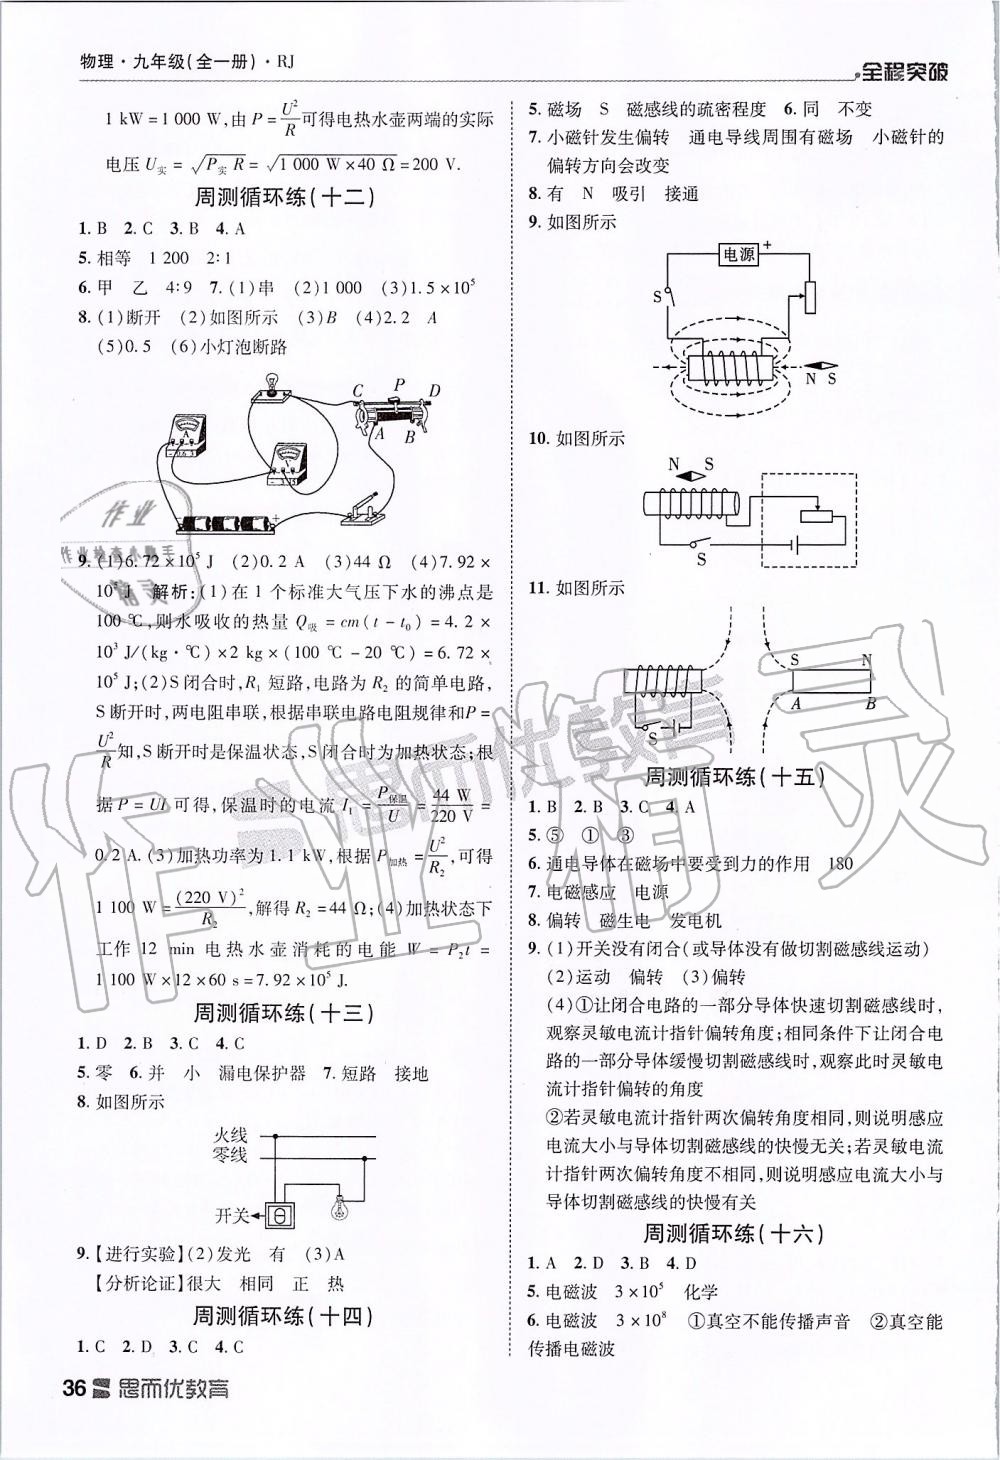 物理·九年级(全一册)·RJ
全程突破
1 kW=1 000 W,由 P=U²/R可得电热水壶两端的实际
电压 U实=√(P实 R)=√(1 000 W×40 Ω)=200 V.
周测循环练(十二)
1. B 2. C 3. B 4. A
5. 相等 1 200 2∶1
6. 甲 乙 4∶9 7. (1)串 (2)1 000 (3)1.5×10⁵
8. (1)断开 (2)如图所示 (3)B (4)2.2 A
(5)0.5 (6)小灯泡断路
C P D
A B
9. (1)6.72×10⁵ J (2)0.2 A (3)44 Ω (4)7.92×
10⁵ J 解析:(1)在 1 个标准大气压下水的沸点是
100 ℃,则水吸收的热量 Q吸=cm(t-t₀)=4.2×
10³ J/(kg·℃)×2 kg×(100 ℃-20 ℃)=6.72×
10⁵ J;(2)S闭合时,R₁ 短路,电路为 R₂ 的简单电路,
S断开时,两电阻串联,根据串联电路电阻规律和P=
U²/R知,S断开时是保温状态,S闭合时为加热状态;根
据 P=UI 可得,保温时的电流 I₁=P保温/U=44 W/220 V=
0.2 A. (3)加热功率为1.1 kW,根据 P加热=U²/R₂,可得
1 100 W=(220 V)²/R₂,解得 R₂=44 Ω;(4)加热状态下
工作 12 min 电热水壶消耗的电能 W=P₂t=
1 100 W×12×60 s=7.92×10⁵ J.
周测循环练(十三)
1. D 2. B 3. C 4. C
5. 零 6. 并 小 漏电保护器 7. 短路 接地
8. 如图所示
火线
零线
开关
9. 【进行实验】(2)发光 有 (3)A
【分析论证】很大 相同 正 热
周测循环练(十四)
1. C 2. D 3. C 4. C
36 思而优教育
5. 磁场 S 磁感线的疏密程度 6. 同 不变
7. 小磁针发生偏转 通电导线周围有磁场 小磁针的
偏转方向会改变
8. 有 N 吸引 接通
9. 如图所示
电源 +
S
N S
10. 如图所示
N S
S
11. 如图所示
S N
A B
S
周测循环练(十五)
1. B 2. B 3. C 4. A
5. ⑤ ① ③
6. 通电导体在磁场中要受到力的作用 180
7. 电磁感应 电源
8. 偏转 磁生电 发电机
9. (1)开关没有闭合(或导体没有做切割磁感线运动)
(2)运动 偏转 (3)偏转
(4)①让闭合电路的一部分导体快速切割磁感线时,
观察灵敏电流计指针偏转角度;相同条件下让闭合电
路的一部分导体缓慢切割磁感线时,观察此时灵敏电
流计指针偏转的角度
②若灵敏电流计指针两次偏转角度相同,则说明感应
电流大小与导体切割磁感线的快慢无关;若灵敏电流
计指针两次偏转角度不相同,则说明感应电流大小与
导体切割磁感线的快慢有关
周测循环练(十六)
1. A 2. D 3. B 4. D
5. 电磁波 3×10⁵ 化学
6. 电磁波 3×10⁸ ①真空不能传播声音 ②真空能
传播电磁波
作业精灵
思而优教育
作业
作业检查小助手
精灵